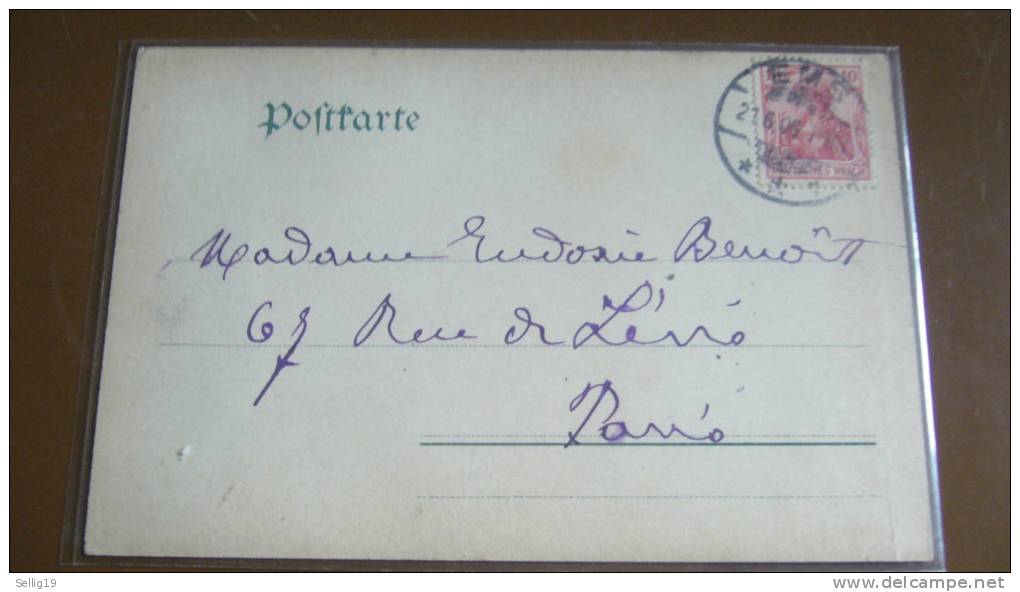 Postkarte
EMS
10
DEUTSCHES REICH
Madame Eudoxie Benoît
67 Rue de Lévis
Paris
Sellig19
delcampe.net